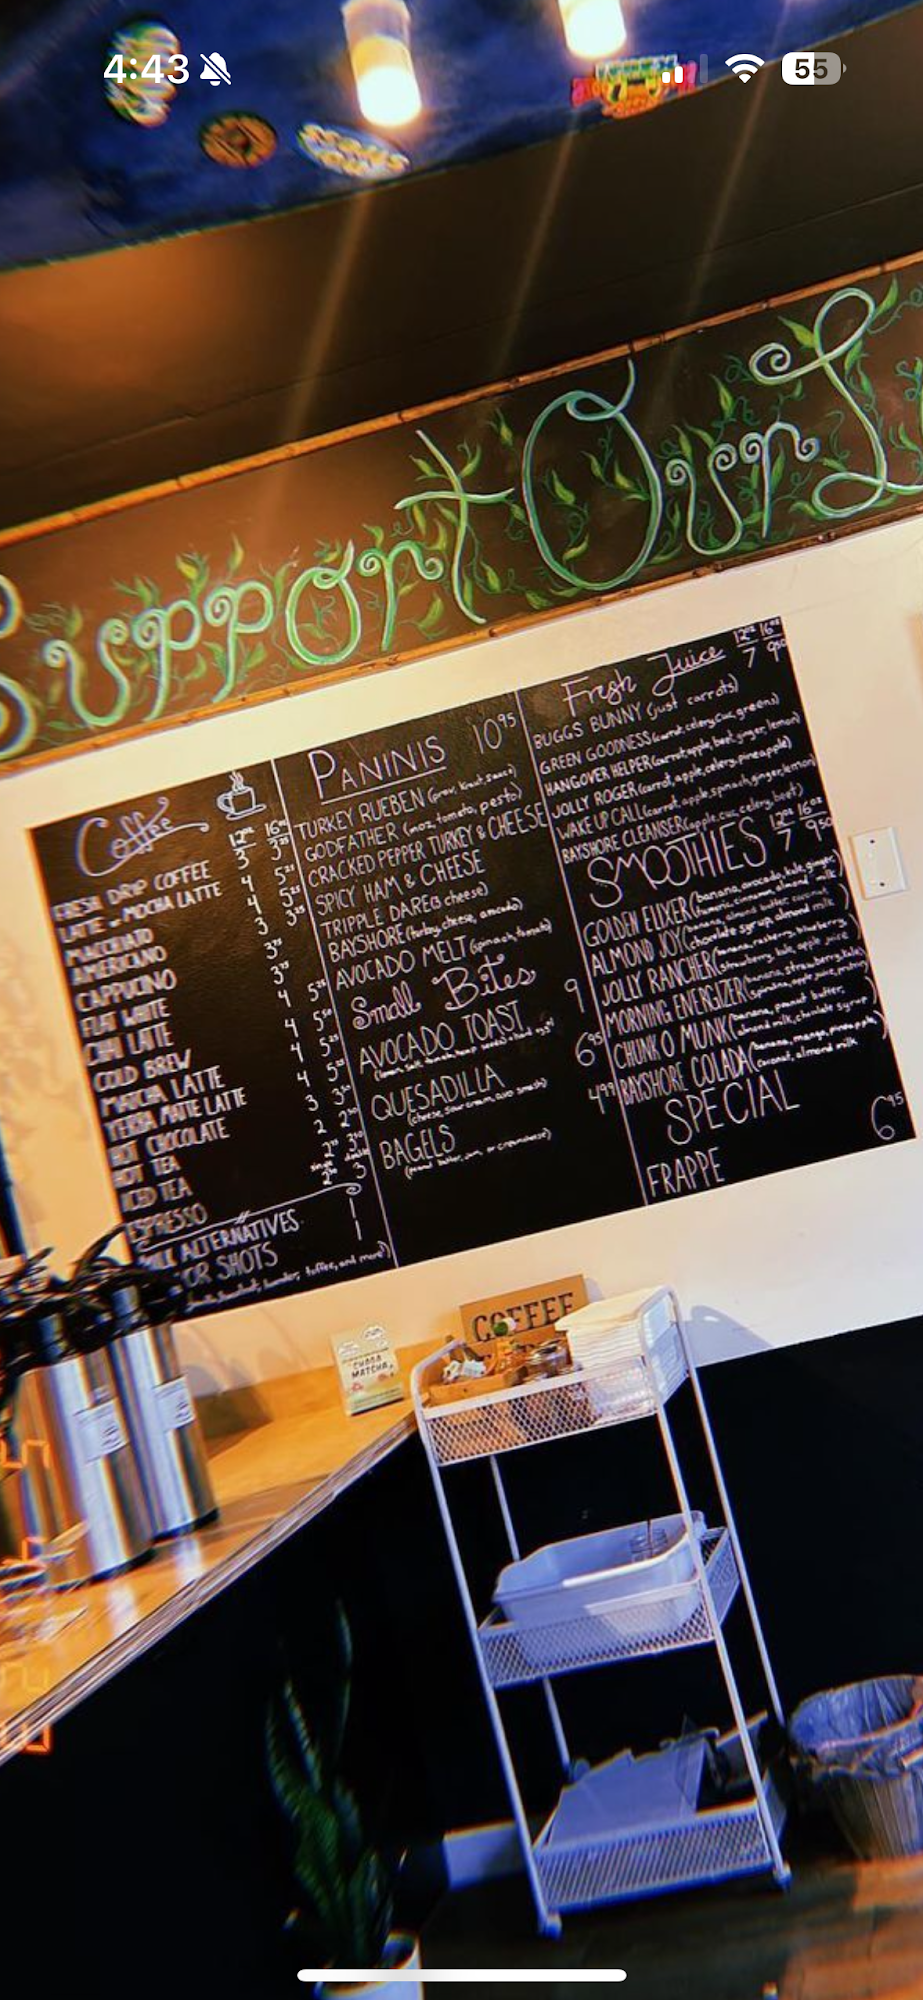 4:43
55
Support Our L
Coffee
12oz 16oz
FRESH DRIP COFFEE 3
LATTE or MOCHA LATTE 4 5²⁵
MACCHIATO 4
AMERICANO 3
CAPPUCINO
FLAT WHITE
CHAI LATTE
COLD BREW
MATCHA LATTE
YERBA MATTE LATTE
HOT CHOCOLATE
HOT TEA
ICED TEA
ESPRESSO
single double
MILK ALTERNATIVES 1
OR SHOTS 1
toffee, and more!)
PANINIS 10⁹⁵
TURKEY RUEBEN (prov, kraut, sauce)
GODFATHER (moz, tomato, pesto)
CRACKED PEPPER TURKEY & CHEESE
SPICY HAM & CHEESE
TRIPPLE DARE (3 cheese)
BAYSHORE (turkey, cheese, avocado)
AVOCADO MELT (spinach, tomato)
Small Bites
AVOCADO TOAST 9
QUESADILLA 6⁹⁵
(cheese, sour cream, avo smash)
BAGELS 4⁹⁹
(peanut butter, jam, or creamcheese)
Fresh Juice 12oz 16oz
7 9⁵⁰
BUGGS BUNNY (just carrots)
GREEN GOODNESS (carrot, celery, cuc, greens)
HANGOVER HELPER (carrot, apple, beet, ginger, lemon)
JOLLY ROGER (carrot, apple, celery, pineapple)
WAKE UP CALL (carrot, apple, spinach, ginger, lemon)
BAYSHORE CLEANSER (apple, cuc, celery, beet)
SMOOTHIES 12oz 16oz
7 9⁵⁰
GOLDEN ELIXER (banana, avocado, kale, ginger,
tumeric, cinnamon, almond milk
ALMOND JOY (banana, almond butter, coconut
chocolate syrup, almond milk
JOLLY RANCHER (banana, rasberry, blueberry
strawberry, kale, apple juice
MORNING ENERGIZER (banana, strawberry, kale,
spirulina, apple juice, protein)
CHUNK O MUNK (banana, peanut butter,
almond milk, chocolate syrup)
BAYSHORE COLADA (banana, mango, pineapple,
coconut, almond milk
SPECIAL
FRAPPE 6⁹⁵
COFFEE
CHAGA
MATCHA